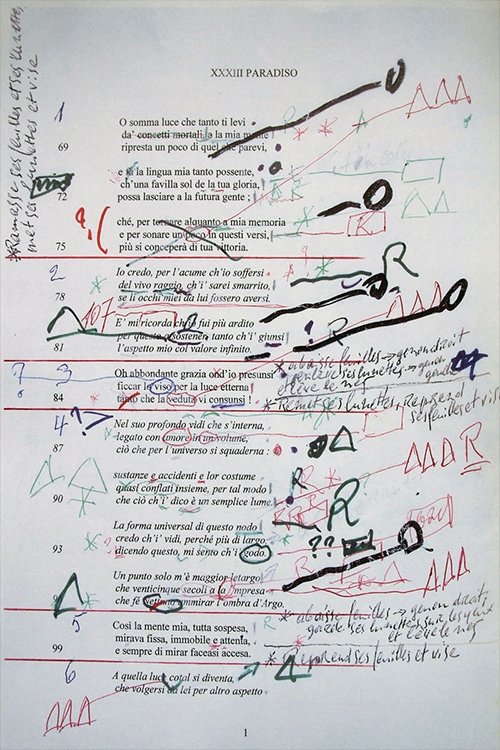 *Ramasse ses feuilles et ses lunettes,
met ses lunettes et vise
XXXIII PARADISO
1
O somma luce che tanto ti levi
da' concetti mortali, a la mia mente
69
ripresta un poco di quel che parevi,
e fa la lingua mia tanto possente,
ch'una favilla sol de la tua gloria,
72
possa lasciare a la futura gente ;
ché, per tornare alquanto a mia memoria
e per sonare un poco in questi versi,
75
più si conceperà di tua vittoria.
2
Io credo, per l'acume ch'io soffersi
del vivo raggio, ch'i' sarei smarrito,
78
se li occhi miei da lui fossero aversi.
107
E' mi ricorda ch'io fui più ardito
per questo a sostener, tanto ch'i' giunsi
81
l'aspetto mio col valore infinito.
? 3
Oh abbondante grazia ond'io presunsi
ficcar lo viso per la luce etterna
84
tanto che la veduta vi consunsi !
*abaisse feuilles → genou droit
*Remet ses lunettes, reprend
ses feuilles et vise
4 ?
Nel suo profondo vidi che s'interna,
legato con amore in un volume,
87
ciò che per l'universo si squaderna :
sustanze e accidenti e lor costume
quasi conflati insieme, per tal modo
90
che ciò ch'i' dico è un semplice lume.
R
La forma universal di questo nodo
credo ch'i' vidi, perché più di largo,
93
dicendo questo, mi sento ch'i' godo.
??
Un punto solo m'è maggior letargo
che venticinque secoli a la 'mpresa
che fé Nettuno ammirar l'ombra d'Argo.
*abaisse feuilles → genou droit,
garde ses lunettes sur les yeux
et lève le nez
*Reprend ses feuilles et vise
5
Così la mente mia, tutta sospesa,
mirava fissa, immobile e attenta,
99
e sempre di mirar faceasi accesa.
6
A quella luce cotal si diventa,
che volgersi da lei per altro aspetto
1